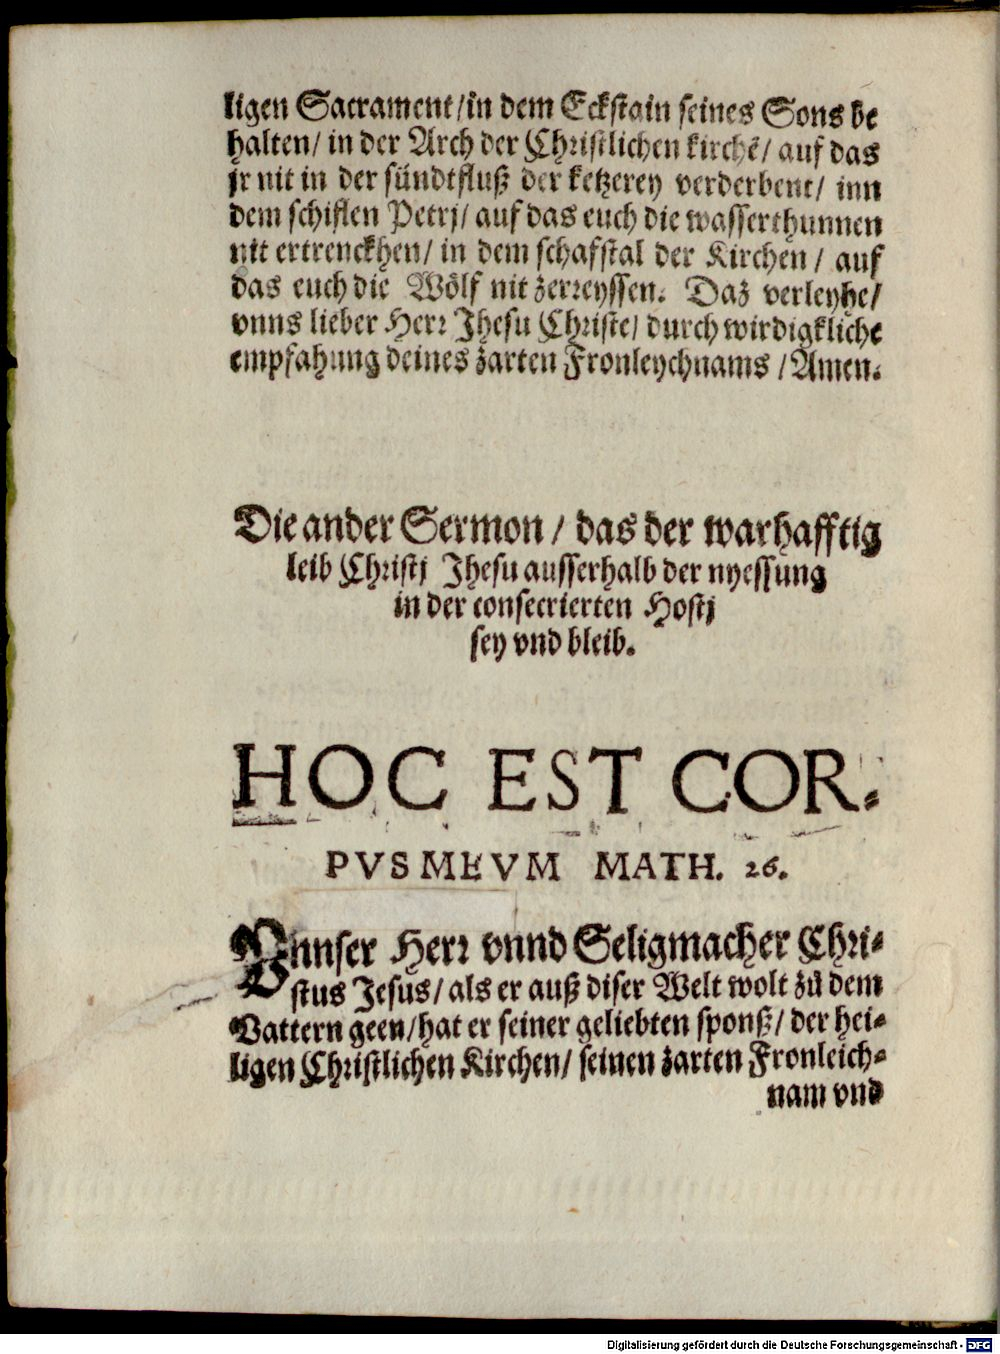 ligen Sacrament/in dem Eckstain seines Sons be
halten/ in der Arch der Christlichen kirchẽ/ auf das
jr nit in der sündtfluß der ketzerey verderbent/ inn
dem schiflen Petrj/ auf das euch die wasserthunnen
nit ertrenckhen/ in dem schafstal der Kirchen / auf
das euch die Wölf nit zerreyssen. Daz verleyhe/
vnns lieber Herr Jhesu Christe/ durch wirdigkliche
empfahung deines zarten Fronleychnams /Amen.
Die ander Sermon / das der warhafftig
leib Christj Jhesu ausserhalb der nyessung
in der consecrierten Hostj
sey vnd bleib.
HOC EST COR-
PVS MEVM MATH. 26.
Vnnser Herr vnnd Seligmacher Chri-
stus Jesus/ als er auß diser Welt wolt zů dem
Vattern geen/hat er seiner geliebten sponß/ der hei-
ligen Christlichen Kirchen/ seinen zarten Fronleich-
nam vnd
Digitalisierung gefördert durch die Deutsche Forschungsgemeinschaft - DFG